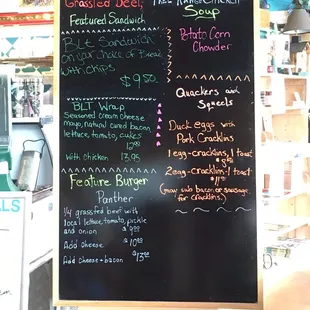 Grassfed Beef,
Featured Sandwich
BLT Sandwich
on your choice of Bread
with chips
$9.50
BLT Wrap
Seasoned cream cheese
mayo, natural cured bacon
lettuce, tomato, cukes
12.00
with chicken 13.95
Feature Burger
Panther
1/4 grassfed beef with
local lettuce, tomato, pickle
and onion $9.00
Add cheese $10.00
Add cheese + bacon $13.00
Chicken
Soup
Potato Corn
Chowder
Quackers and
Squeels
Duck eggs with
Pork Cracklins
1 egg-cracklins, 1 toast
2 egg-cracklin-1 toast
(may sub bacon or sausage
for cracklins)
ALS